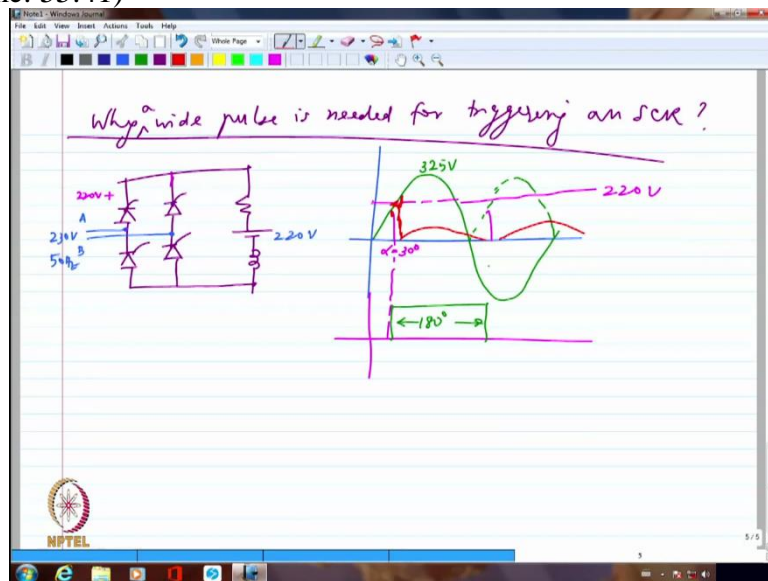 Note1 - Windows Journal
File Edit View Insert Actions Tools Help
Whole Page
B I
Why a wide pulse is needed for triggering an SCR?
325V
220V+
220V
A
230V
220V
B
50Hz
α=30°
←180°→
NPTEL
5/5
5